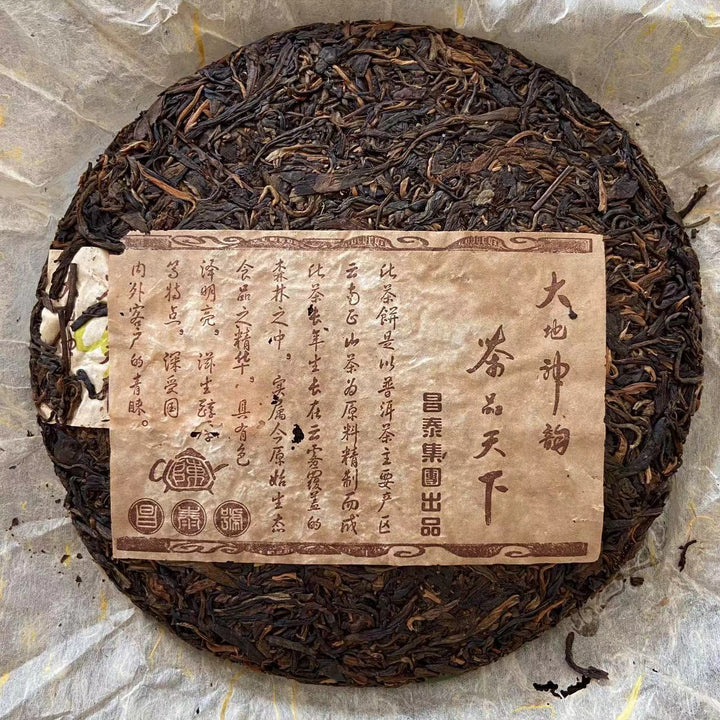 大地神韵
茶品天下
昌泰集團出品
此茶餅是以普洱茶主要产区
云南正山茶为原料精制而成
此茶长年生长在云雾覆盖的
森林之中。实属今原始生态
食品之精华。具有色
泽明亮。滋生醇
等特点。深受国
内外客户的青睐。
陳
昌泰號